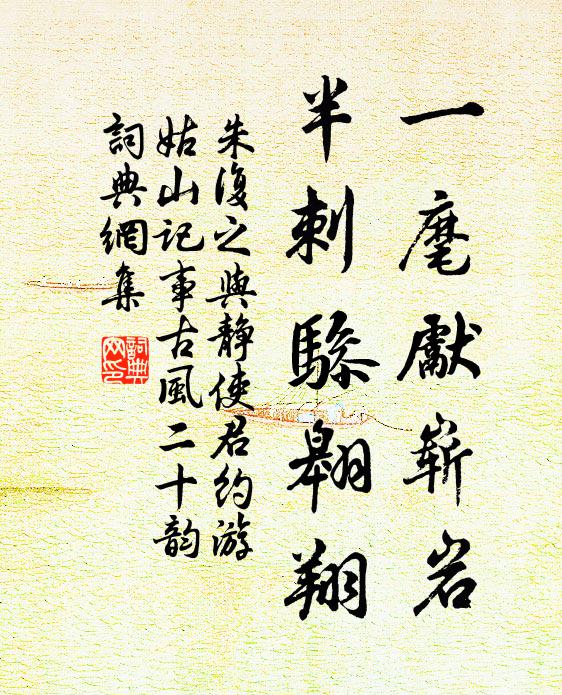 一麾獻嶄岩
半刺驂翱翔
朱復之與静使君約游
姑山記事古風二十韵
詞典網集
詞典网印